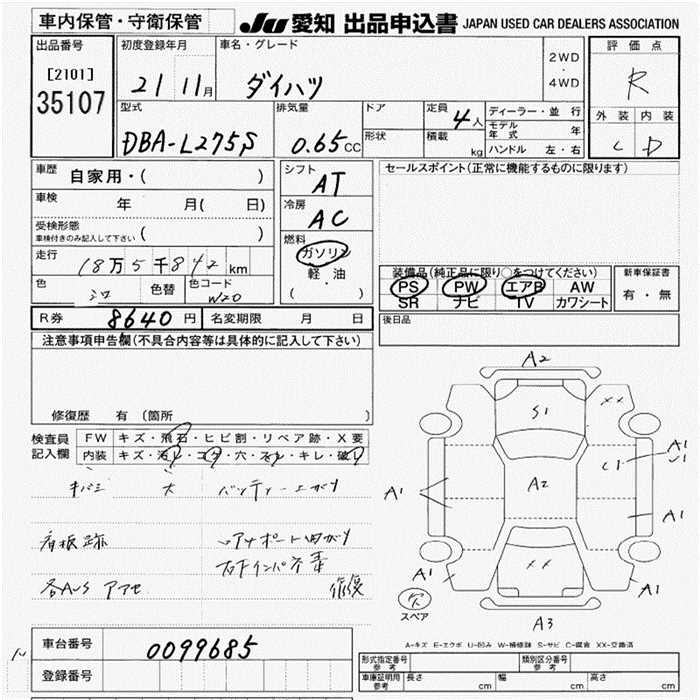 車内保管・守衛保管
JU 愛知 出品申込書 JAPAN USED CAR DEALERS ASSOCIATION
出品番号
[2101]
35107
初度登録年月
21 11月
車名・グレード
ダイハツ
2WD
・
4WD
評価点
R
外装 内装
C D
型式
DBA-L275S
排気量
0.65 CC
ドア
形状
定員 4人
積載 kg
ディーラー・並行
モデル年式 年
ハンドル 左・右
車歴
自家用・( )
車検
年 月( 日)
受検形態
車検付きのみ記入して下さい ( )
走行
18万5千842 km
色
色替
色コード
W20
シフト
AT
冷房
AC
燃料
ガソリン
・
軽油
( )
セールスポイント(正常に機能するものに限ります)
装備品(純正品に限り○をつけてください)
PS PW エアB AW
SR ナビ TV カワシート
新車保証書
有・無
R券 8640 円
名変期限 月 日
後日品
注意事項申告欄(不具合内容等は具体的に記入して下さい)
修復歴 有(箇所 )
検査員記入欄
FW キズ・飛石・ヒビ割・リペア跡・X要
内装 キズ・汚レ・コゲ・穴・スレ・キレ・破レ
キバミ 大 バッテリー上がり
看板跡
各AUS アアセ
A2
S1
XX
A1
A2
A1
A1
A1
XX
A1
A3
欠
スペア
A-キズ E-エクボ U-凹み W-補修跡 S-サビ C-腐食 XX-交換済
車台番号
0099685
登録番号
形式指定番号 参考
類別区分番号 参考
車庫証明用 参考
長さ cm
幅 cm
高さ cm